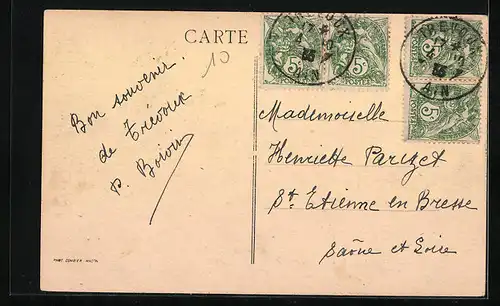 CARTE
10
Bon souvenir
de Trévoux
P. Boivin
Mademoiselle
Henriette Parizet
St. Etienne en Bresse
Saône et Loire
TREVOUX
AIN
5
5
TREVOUX
AIN
5